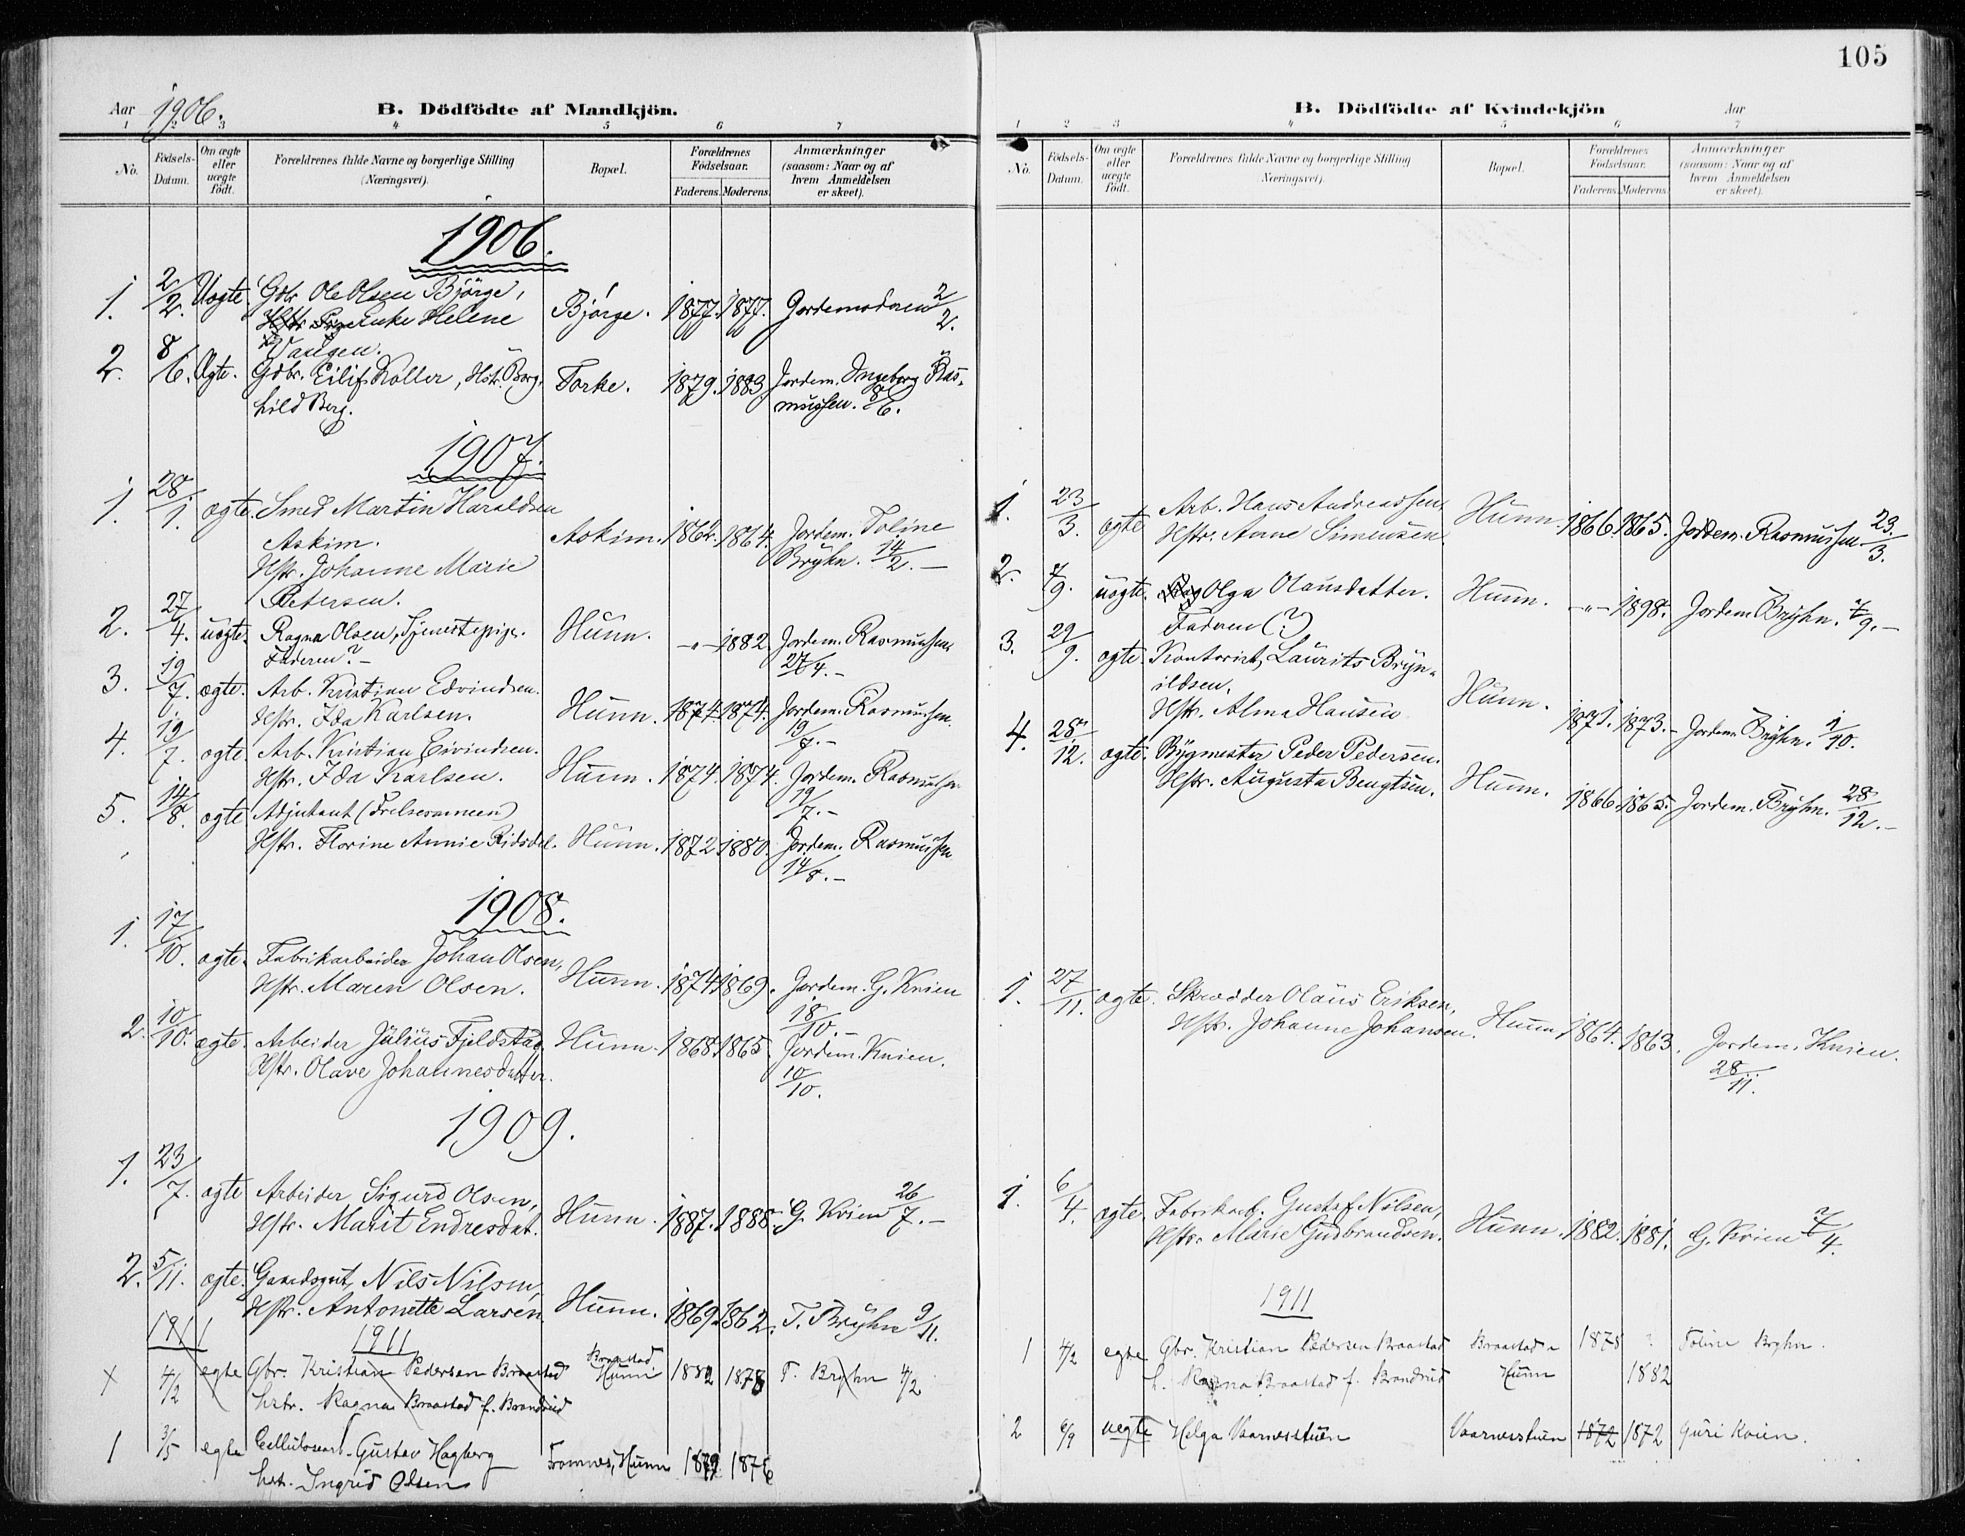 Aar 1906. B. Dödfödte af Mandkjön.
1 2 3 4 5 6 7
No. Födsels-Datum. Om ægte eller uægte födt. Forældrenes fulde Navne og borgerlige Stilling (Næringsvei). Bopæl. Forældrenes Födselsaar. Faderens. Moderens. Anmærkninger (saasom: Naar og af hvem Anmeldelsen er skeet).
1906.
1. 2/2. Uægte. Gbr. Ole Olsen Bjørge, Bjørge. 1877. 1877. Gjordemoderen 2/2.
Enke Helene
Vangen.
2. 8/6. Ægte. Gdbr. Eilif Koller, Hstr. Borg- Torke. 1879. 1883 Jordem. Ingeborg Ras-
hild Berg. mussen. 8/6.
1907.
1. 28/1. ægte. Smed Martin Haraldsen
Askim. Askim. 1862. 1864. Jordem. Toline
Hstr. Johanne Marie Bryhn. 14/2. —
Petersen.
2. 27/4. uægte. Ragna Olsen, Tjenestepige. Hunn. —"— 1882 Jordem. Rasmussen
Faderen? — 27/4. —
3. 19/7. ægte. Arb. Kristian Edvindsen. Hunn. 1874. 1874. Jordem. Rasmussen.
Hstr. Ida Karlsen. 19/7. —
4. 19/7. ægte. Arb. Kristian Eivindsen. Hunn. 1874. 1874. Jordem. Rasmussen
Hstr. Ida Karlsen. 19/7. —
5. 14/8. ægte Adjutant (Frelsesarmeen)
Hstr. Florine Annie Ridsdel. Hunn. 1872 1880. Jordem. Rasmussen
14/8. —
1908.
1. 17/10. ægte. Fabrikarbeider Johan Olsen,
Hstr. Maren Olsen. Hunn. 1874. 1869. Jordem. G. Kvien
18/10. —
2. 10/10. ægte. Arbeider Julius Fjeldstad Hunn. 1868. 1865. Jordem. Kvien.
Hstr. Olave Johannesdatter. 10/10.
1909.
1. 23/7. ægte Arbeider Sigurd Olsen,
Hstr. Marit Endresdat. Hunn. 1887. 1888. G. Kvien 26/7. —
2. 5/11. ægte. Gaardsgut, Nils Nilsen,
Hstr. Antonette Larsen. Hunn. 1869. 1862. T. Bryhn 9/11.
1911 1911
x 4/2 egte Gbr. Kristian Pedersen Braastad Braastad Hunn 1882 1878 T. Bryhn 4/2
hstr. Ragna Braastad f. Brandrud
1 3/5 egte Cellulosearb. Gustav Hagberg
hstr. Ingrid Olsen Hunn 1879 1876
105
B. Dödfödte af Kvindekjön Aar
1 2 3 4 5 6 7
No. Födsels-Datum. Om ægte eller uægte födt. Forældrenes fulde Navne og borgerlige Stilling (Næringsvei). Bopæl. Forældrenes Födselsaar. Faderens. Moderens. Anmærkninger (saasom: Naar og af hvem Anmeldelsen er skeet).
1. 23/3. ægte Arb. Hans Andreassen Hunn. 1866. 1865. Jordem. Rasmussen 23/3.
Hstr. Anne Simensen.
2. 7/9. uægte. Olga Olausdatter. Hunn. —"— 1898. Jordem. Bryhn. 7/9. —
Faderen (?)
3. 29/9. ægte. Kontorist, Laurits Bryn-
ildsen. Hunn. 1871. 1873. — Jordem. Bryhn. 1/10.
Hstr. Alma Hansen
4. 28/12. ægte. Bygmester Peder Pedersen.
Hstr. Augusta Bengtsen. Hunn. 1866. 1865. Jordem. Bryhn. 28/12. —
1. 27/11. ægte. Skrædder Olaus Eriksen,
Hstr. Johanne Johansen. Hunn. 1864. 1863. Jordem. Kvien.
28/11.
1. 6/4. ægte. Fabrikarb. Gustaf Nilsen,
Hstr. Marie Gudbrandsen. Hunn. 1882. 1881. G. Kvien 7/4.
1911
1 4/2 egte Gbr. Kristian Pedersen Braastad Braastad 1878 Toline Bryhn.
h. Ragna Braastad f. Brandrud Hunn 1882
2 6/9 uegte Helga Vaarnesstuen Vaarnesstuen 1872 1872 Guri Kvien.